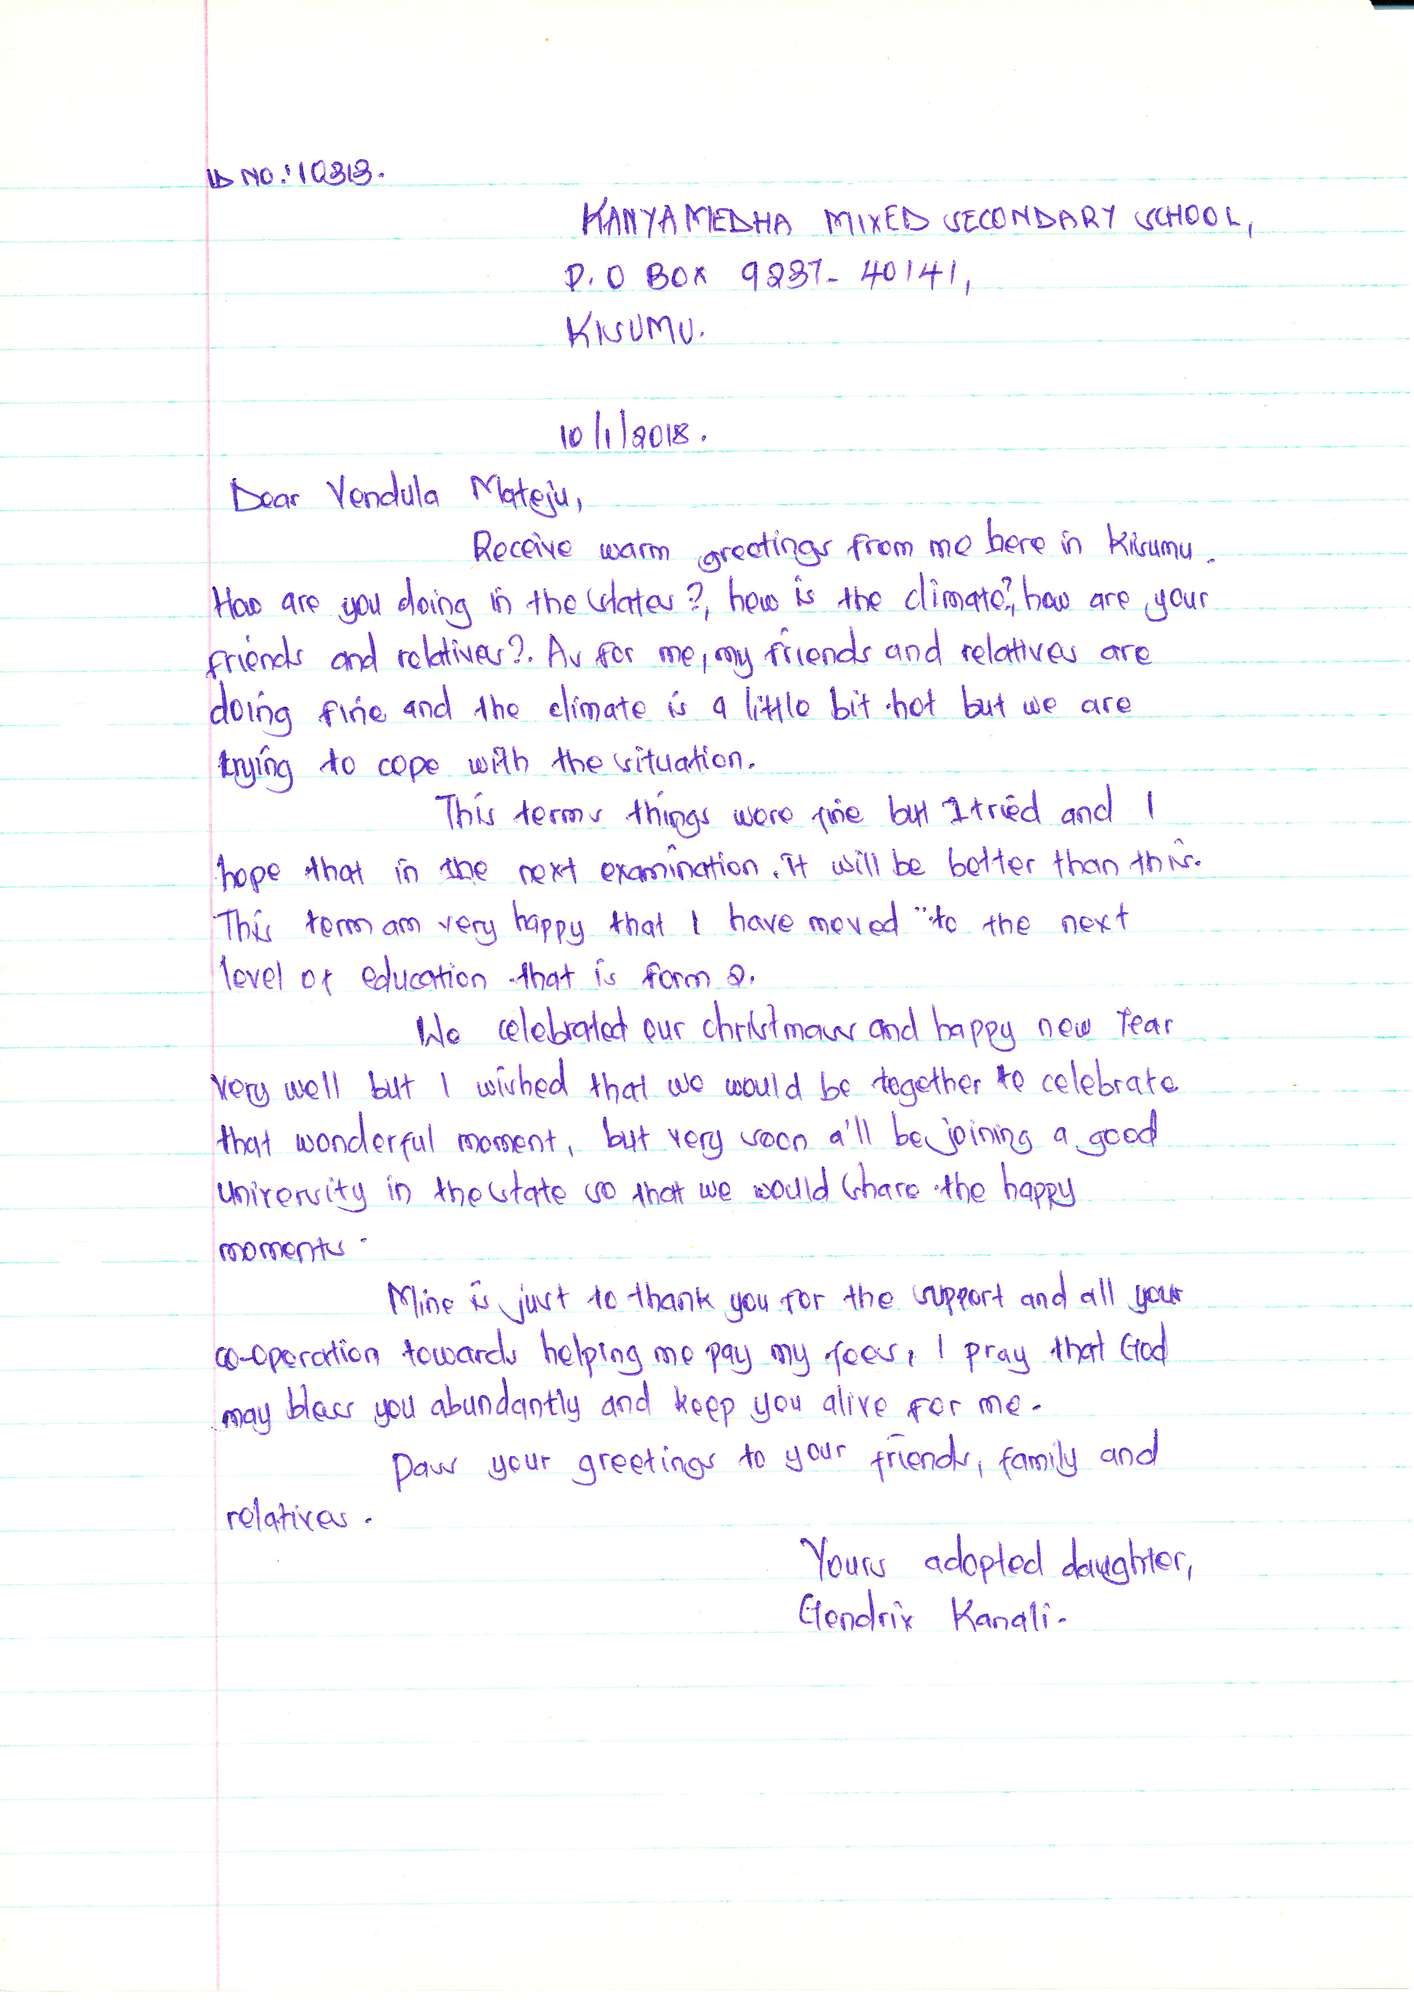 ID NO: 10313.
KANYAMEDHA MIXED SECONDARY SCHOOL,
P.O BOX 9237- 40141,
KISUMU.
10/1/2018.
Dear Vendula Mateju,
Receive warm greetings from me here in Kisumu.
How are you doing in the states?, how is the climate?, how are your
friends and relatives?. As for me, my friends and relatives are
doing fine and the climate is a little bit hot but we are
trying to cope with the situation.
This terms things were fine but I tried and I
hope that in the next examination. it will be better than this.
This term am very happy that I have moved to the next
level of education that is form 2.
We celebrated our christmass and happy new Year
very well but I wished that we would be together to celebrate
that wonderful moment, but very soon a'll be joining a good
university in the state so that we would share the happy
moments.
Mine is just to thank you for the support and all your
co-operation towards helping me pay my fees, I pray that God
may bless you abundantly and keep you alive for me.
Pass your greetings to your friends, family and
relatives.
Yours adopted daughter,
Gendrix Kanali.